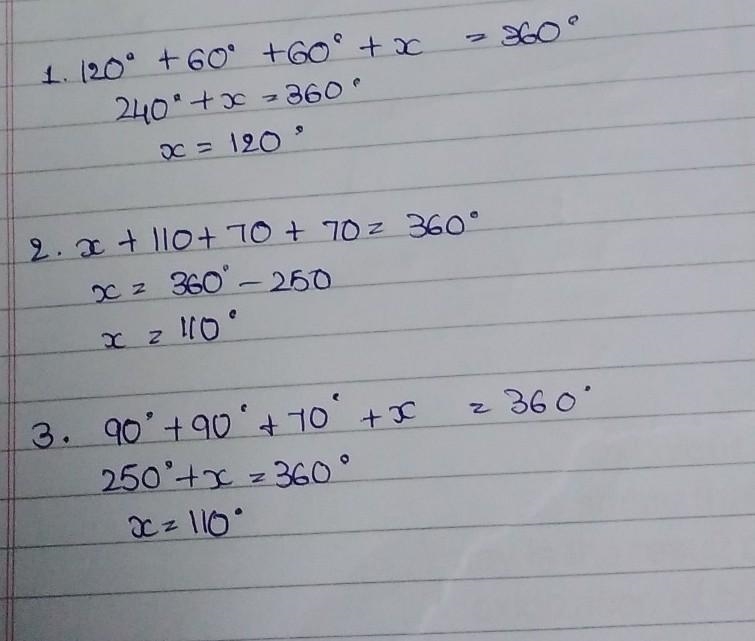 1. 120° + 60° + 60° + x = 360°
240° + x = 360°
x = 120°
2. x + 110 + 70 + 70 = 360°
x = 360° - 250
x = 110°
3. 90° + 90° + 70° + x = 360°
250° + x = 360°
x = 110°